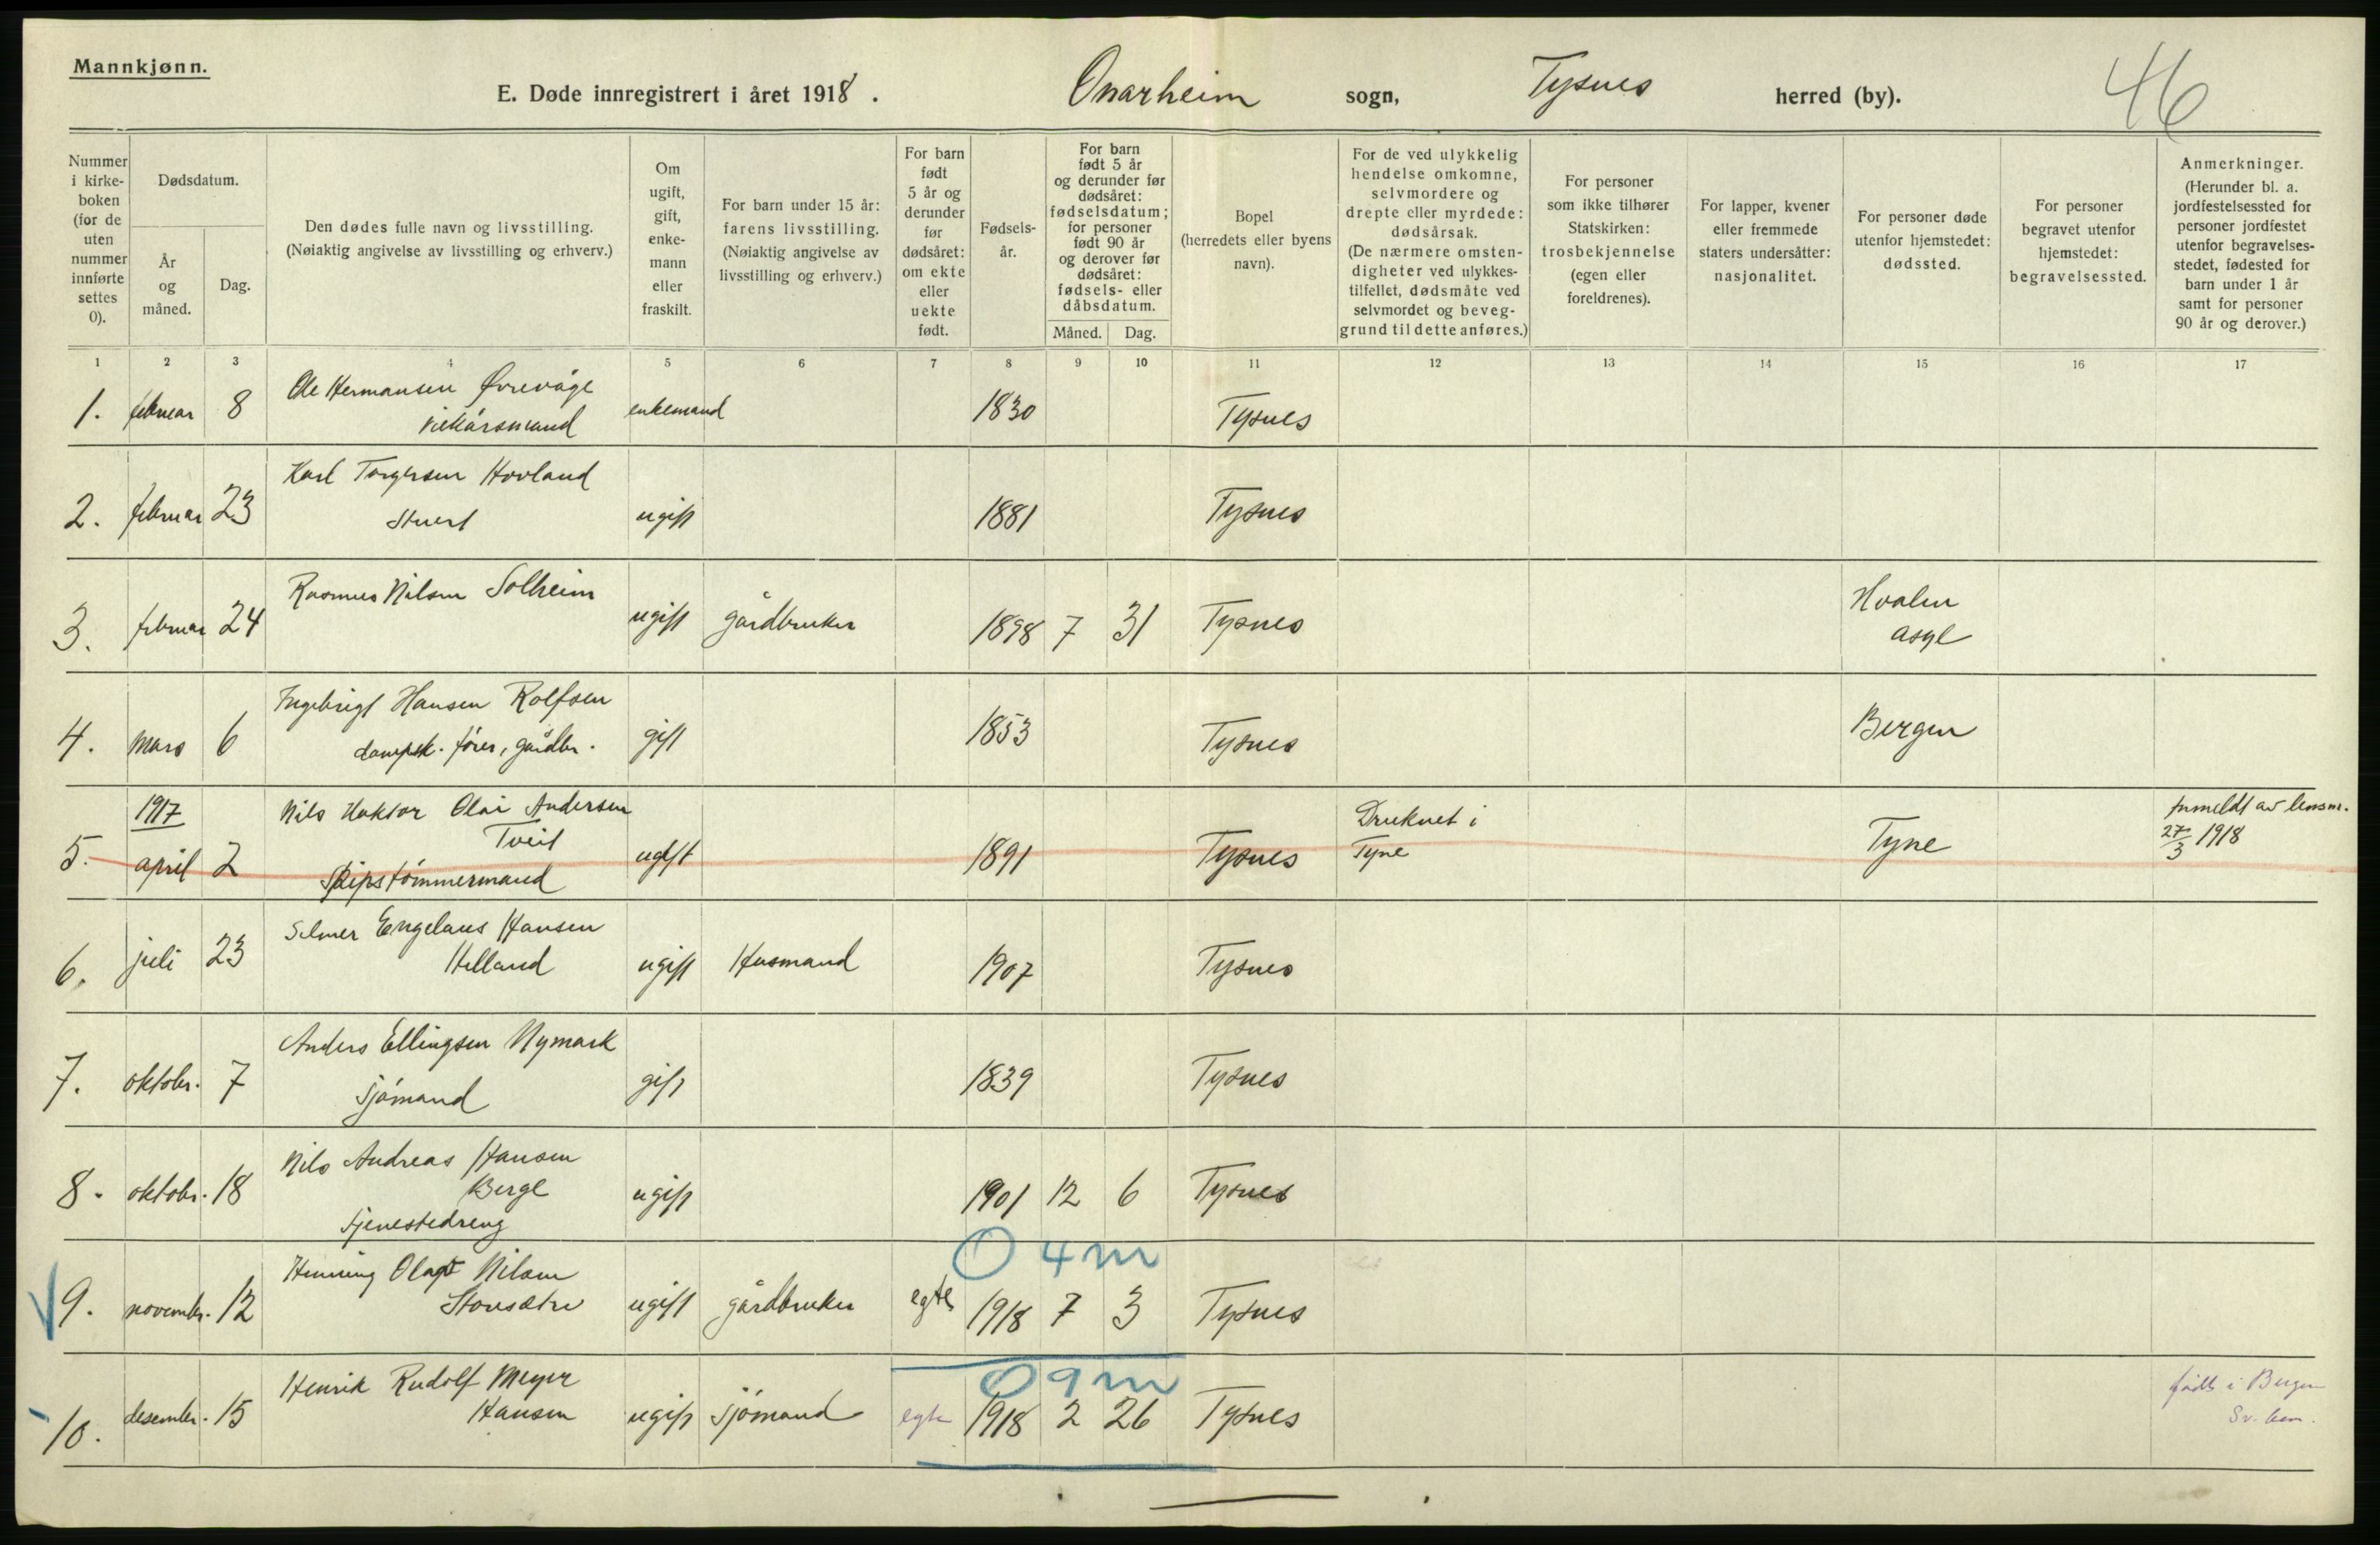 Mannkjønn.
E. Døde innregistrert i året 1918. Onarheim sogn, Tysnes herred (by). 46
Nummer i kirke-boken (for de uten nummer innførte settes 0).
Dødsdatum.
År og måned.
Dag.
Den dødes fulle navn og livsstilling. (Nøiaktig angivelse av livsstilling og erhverv.)
Om ugift, gift, enke-mann eller fraskilt.
For barn under 15 år: farens livsstilling. (Nøiaktig angivelse av livsstilling og erhverv.)
For barn født 5 år og derunder før dødsåret: om ekte eller uekte født.
Fødsels-år.
For barn født 5 år og derunder før dødsåret: fødselsdatum; for personer født 90 år og derover før dødsåret: fødsels- eller dåbsdatum.
Måned. Dag.
Bopel (herredets eller byens navn).
For de ved ulykkelig hendelse omkomne, selvmordere og drepte eller myrdede: dødsårsak. (De nærmere omsten-digheter ved ulykkes-tilfellet, dødsmåte ved selvmordet og beveg-grund til dette anføres.)
For personer som ikke tilhører Statskirken: trosbekjennelse (egen eller foreldrenes).
For lapper, kvener eller fremmede staters undersåtter: nasjonalitet.
For personer døde utenfor hjemstedet: dødssted.
For personer begravet utenfor hjemstedet: begravelsessted.
Anmerkninger. (Herunder bl. a. jordfestelsessted for personer jordfestet utenfor begravelses-stedet, fødested for barn under 1 år samt for personer 90 år og derover.)
1 2 3 4 5 6 7 8 9 10 11 12 13 14 15 16 17
1. februar 8 Ole Hermansen Øvrevåge enkemand 1830 Tysnes
vilkårsmand
2. februar 23 Karl Torgersen Hovland ugift 1881 Tysnes
Stuert
3. februar 24 Rasmus Nilsen Solheim ugift gårdbruker 1898 7 31 Tysnes Hvalen
asyl
4. mars 6 Ingebrigt Hansen Rolfsen gift 1853 Tysnes Bergen
dampsk. fører, gårdbr.
1917
5. april 2 Nils Haktor Olai Andersen
Tveit
Skipstømmermand ugift 1891 Tysnes Druknet i
Tyne Tyne Anmeldt av lensm.
27/3 1918
6. juli 23 Selmer Engelaus Hansen
Helland ugift Husmand 1907 Tysnes
7. oktobr. 7 Anders Ellingsen Nymark
sjømand gift 1839 Tysnes
8. oktobr. 18 Nils Andreas Hansen
Berge
tjenestedreng ugift 1901 12 6 Tysnes
0 4 m
9. novembr. 12 Henning Olaf Nilsen
Storsætre ugift gårdbruker egte 1918 7 3 Tysnes
0 9 m
10. desembr. 15 Henrik Rudolf Meyer
Hansen ugift sjømand egte 1918 2 26 Tysnes født i Bergen